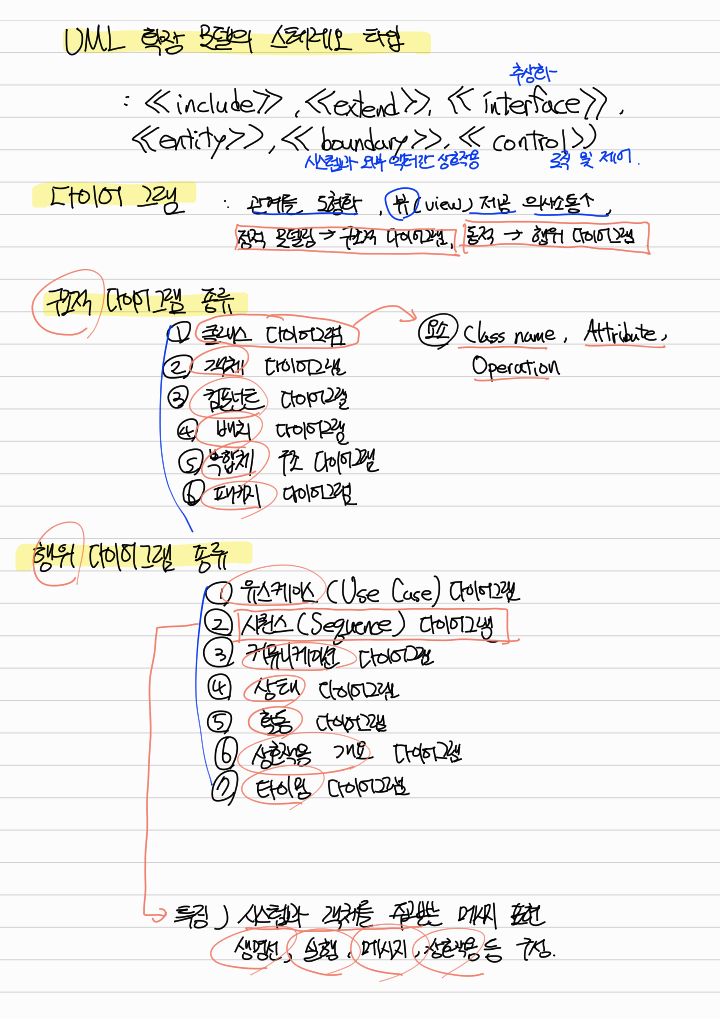 UML 확장 모델의 스테레오 타입
추상화
: <<include>>, <<extend>>, <<interface>>,
<<entity>>, <<boundary>>, <<control>>
시스템과 외부 액터간 상호작용 로직 및 제어.
다이어그램 : 관계를 도형화, 뷰(view) 제공 의사소통↑,
정적 모델링 → 구조적 다이어그램, 동적 → 행위 다이어그램
구조적 다이어그램 종류
① 클래스 다이어그램 요소 Class name, Attribute,
② 객체 다이어그램 Operation
③ 컴포넌트 다이어그램
④ 배치 다이어그램
⑤ 복합체 구조 다이어그램
⑥ 패키지 다이어그램
행위 다이어그램 종류
① 유스케이스 (Use Case) 다이어그램
② 시퀀스 (Sequence) 다이어그램
③ 커뮤니케이션 다이어그램
④ 상태 다이어그램
⑤ 활동 다이어그램
⑥ 상호작용 개요 다이어그램
⑦ 타이밍 다이어그램
특징) 시스템과 객체를 주고받는 메시지 표현
생명선, 실행, 메시지, 상호작용 등 구성.